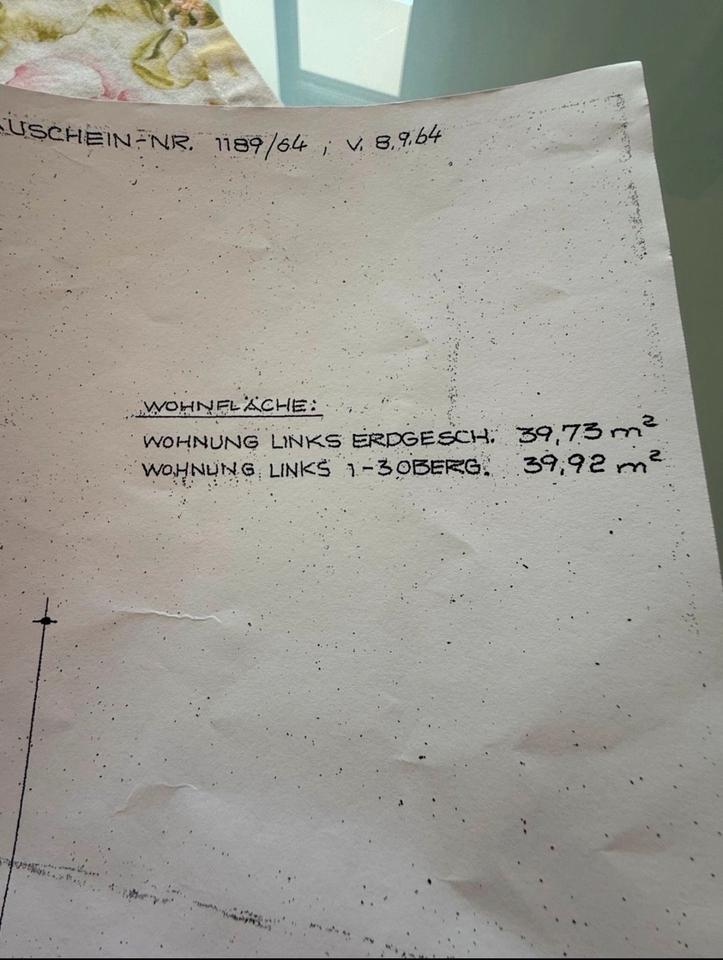 AUSCHEIN-NR. 1189/64 ; V. 8.9.64
WOHNFLÄCHE:
WOHNUNG LINKS ERDGESCH. 39,73 m²
WOHNUNG LINKS 1-3 OBERG. 39,92 m²